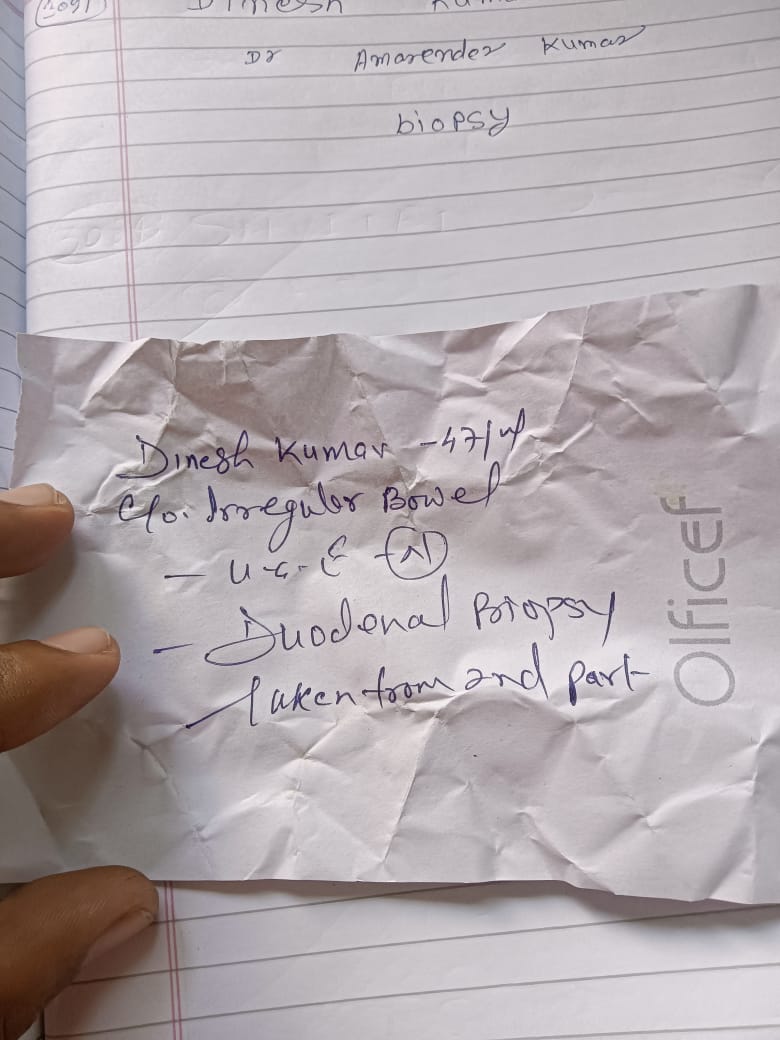 Dinesh
Dr Amarender Kumar
biopsy
Dinesh Kumar - 47/M
C/o. Irregular Bowel
- U.G.E (N)
- Duodenal Biopsy
taken from 2nd part
Officef